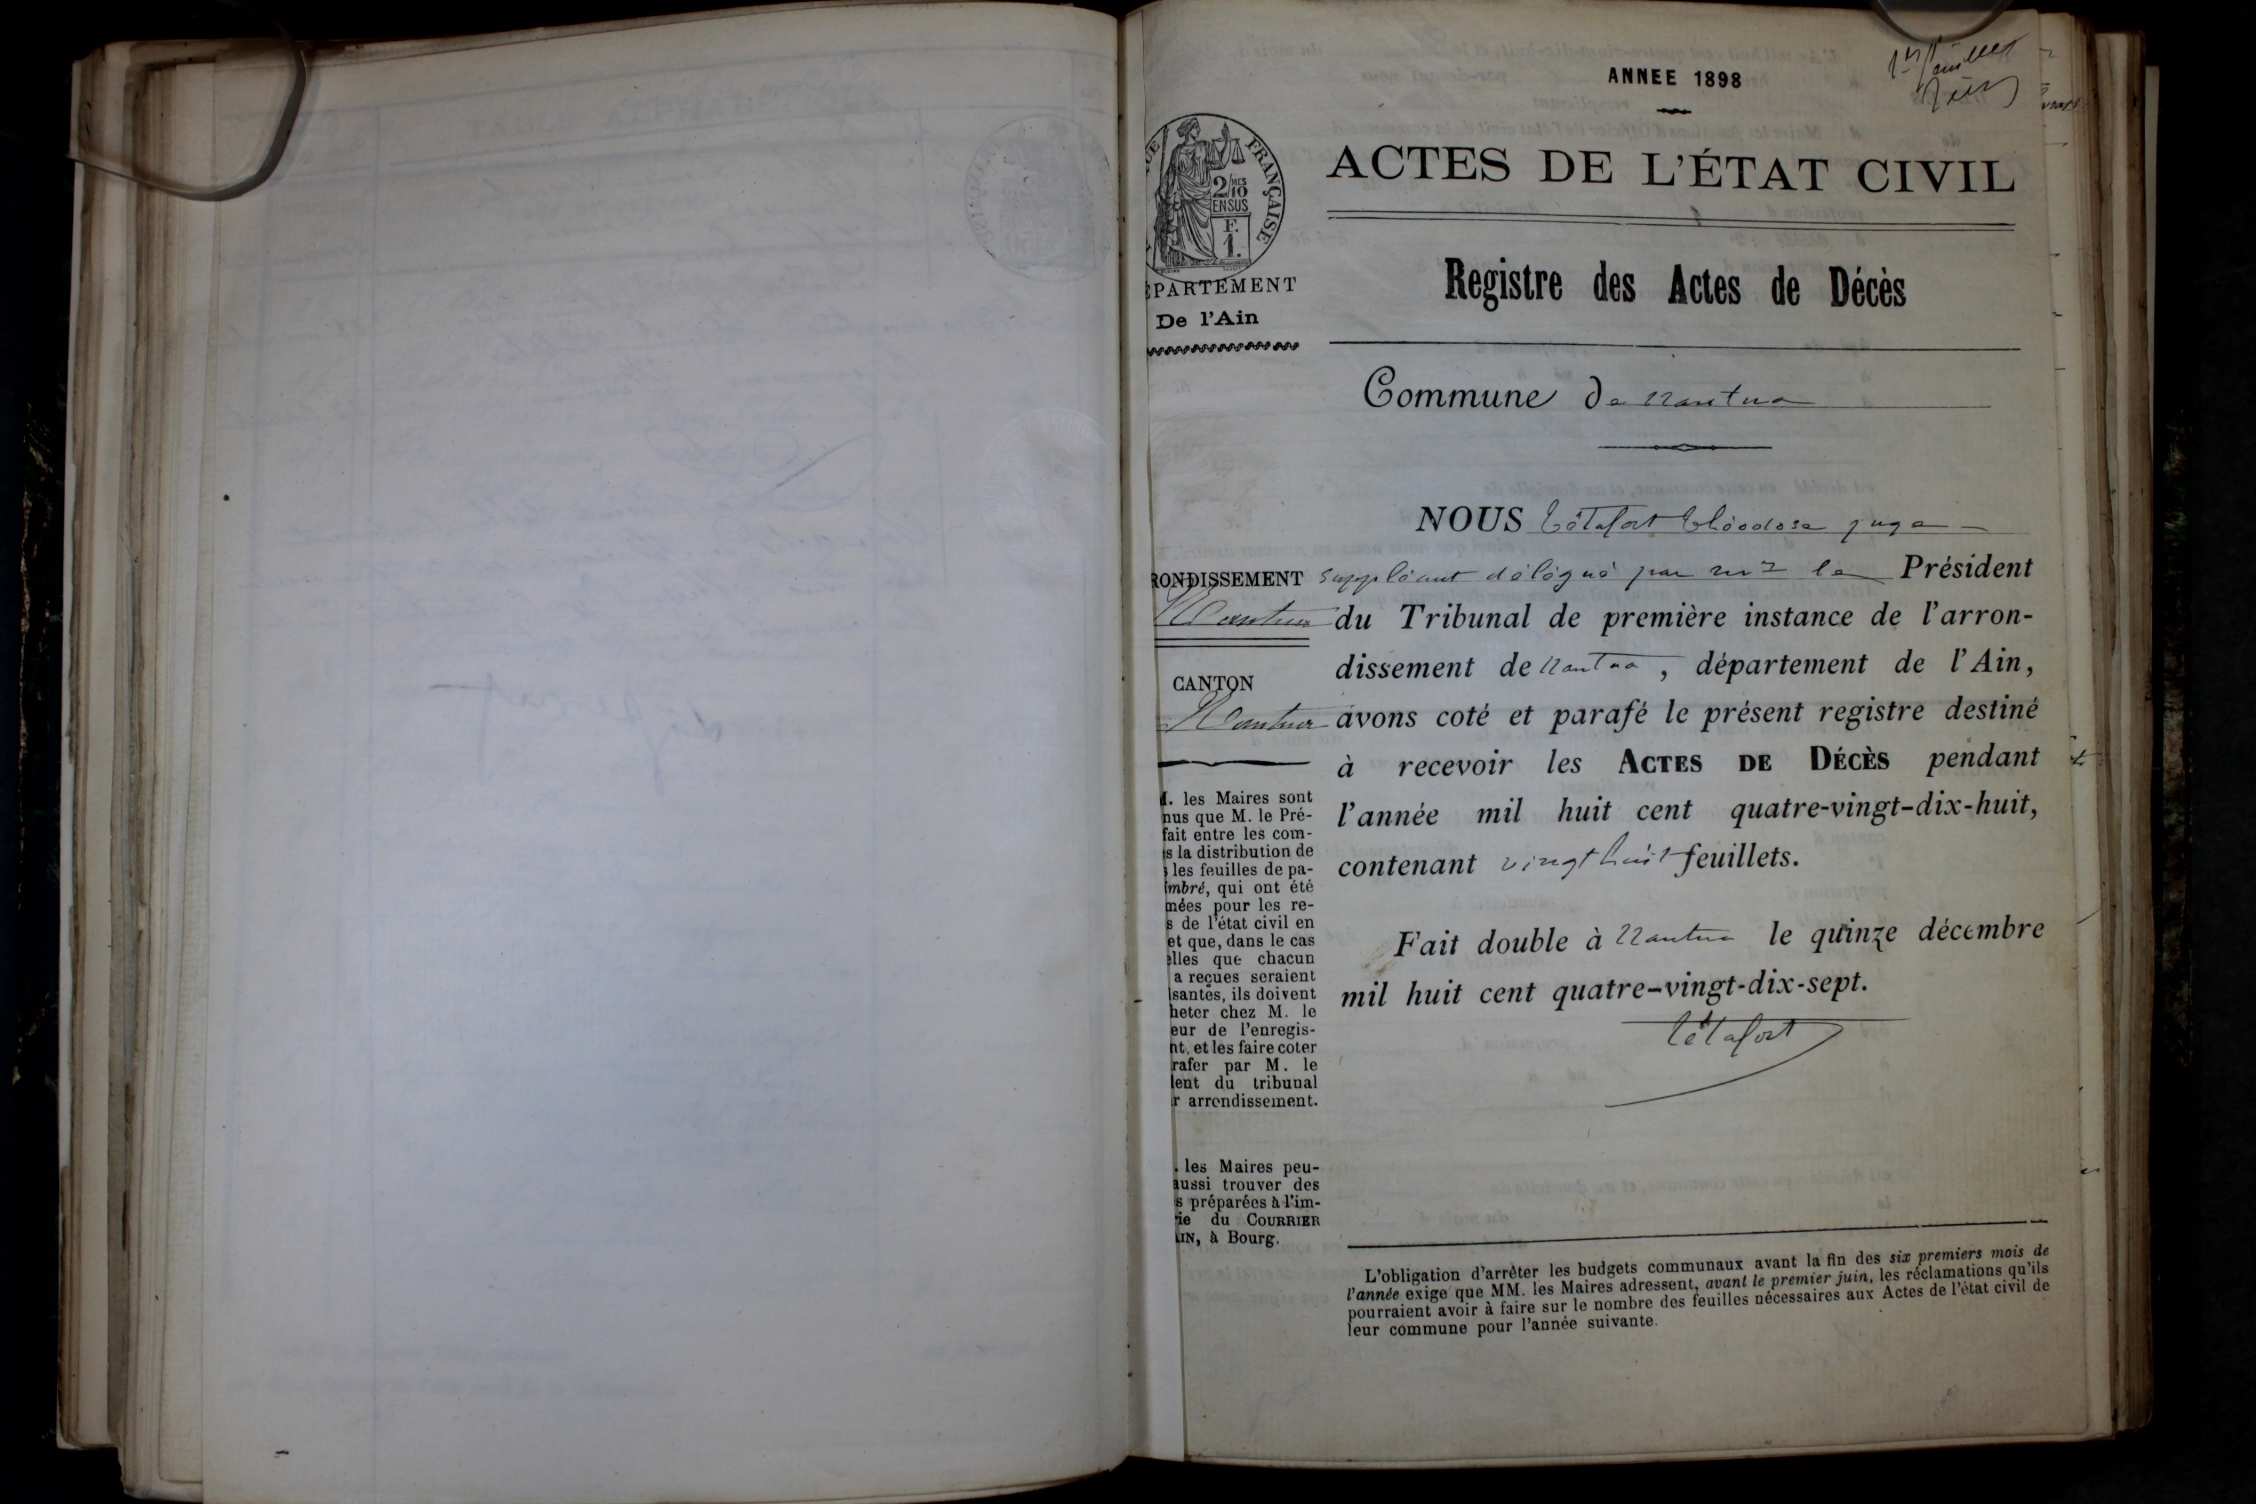 1er feuillet
ANNEE 1898
ACTES DE L'ÉTAT CIVIL
FRANÇAISE
2/10
MES
EN SUS
F.
1.
ÉPARTEMENT
De l'Ain
Registre des Actes de Décès
Commune de Nantua
NOUS Tétafort Théodose juge
suppléant délégué par Mr le Président
du Tribunal de première instance de l'arron-
dissement de Nantua, département de l'Ain,
avons coté et parafé le présent registre destiné
à recevoir les ACTES DE DÉCÈS pendant
l'année mil huit cent quatre-vingt-dix-huit,
contenant vingt huit feuillets.
Fait double à Nantua le quinze décembre
mil huit cent quatre-vingt-dix-sept.
Tétafort
RONDISSEMENT
Nantua
CANTON
Nantua
M. les Maires sont
nus que M. le Pré-
fait entre les com-
s la distribution de
s les feuilles de pa-
imbré, qui ont été
mées pour les re-
s de l'état civil en
et que, dans le cas
elles que chacun
a reçues seraient
isantes, ils doivent
heter chez M. le
eur de l'enregis-
nt, et les faire coter
rafer par M. le
dent du tribunal
r arrondissement.
. les Maires peu-
aussi trouver des
s préparées à l'im-
rie du COURRIER
AIN, à Bourg.
L'obligation d'arrêter les budgets communaux avant la fin des six premiers mois de
l'année exige que MM. les Maires adressent, avant le premier juin, les réclamations qu'ils
pourraient avoir à faire sur le nombre des feuilles nécessaires aux Actes de l'état civil de
leur commune pour l'année suivante.